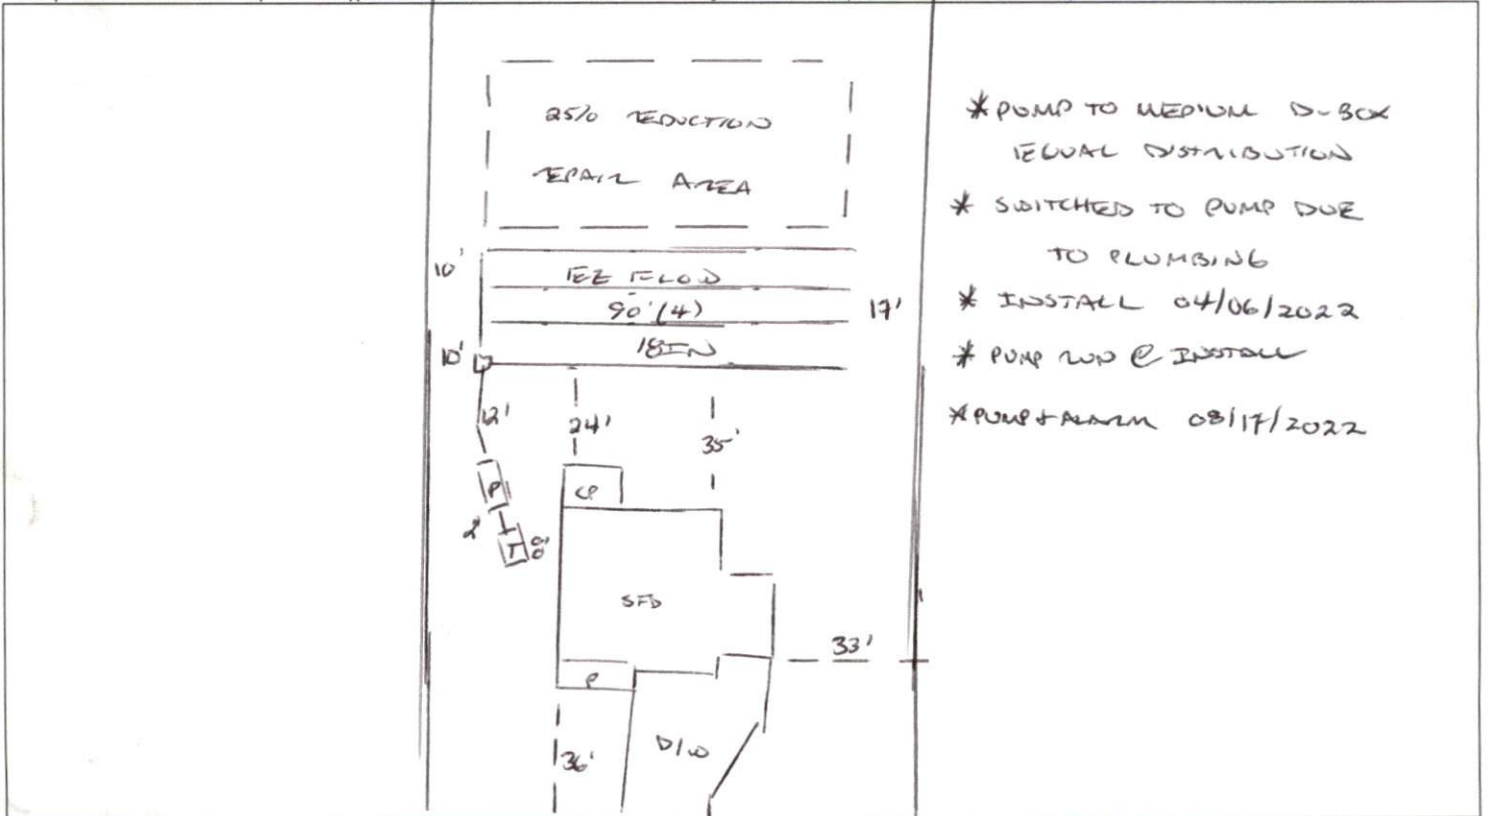 25% REDUCTION
REPAIR AREA
10'
EZ FLOW
90' (4)
17'
18IN
10'
12'
24'
35'
P
CP
2'
T
8'
SFD
33'
P
D/W
36'
* PUMP TO MEDIUM D-BOX
EQUAL DISTRIBUTION
* SWITCHED TO PUMP DUE
TO PLUMBING
* INSTALL 04/06/2022
* PUMP RUN @ INSTALL
* PUMP + ALARM 08/17/2022